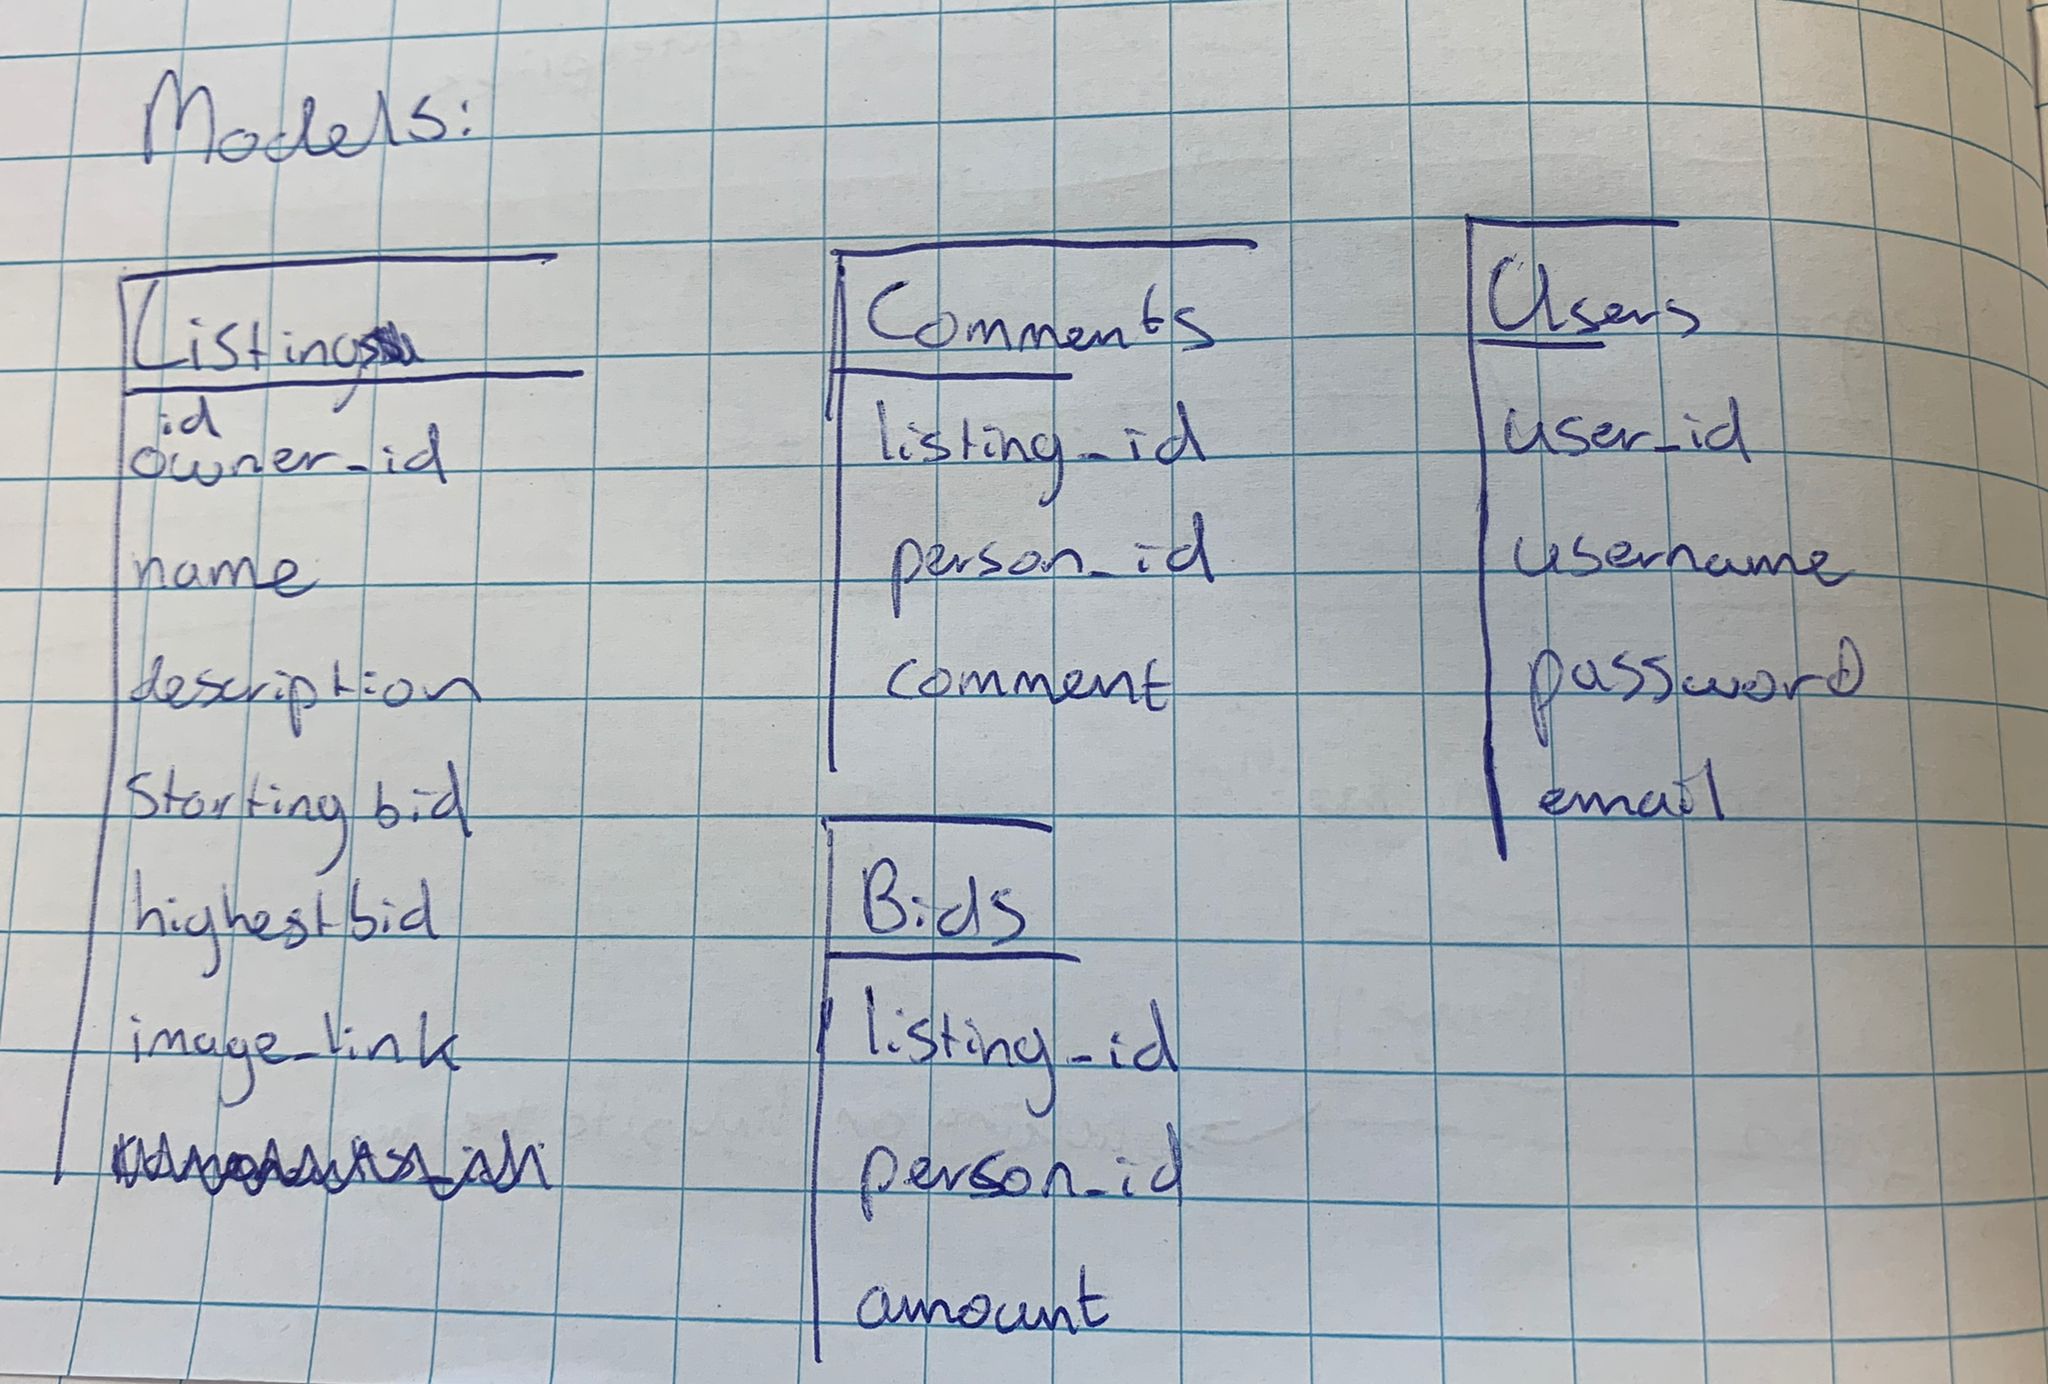 Models:
Listings
id
owner_id
name
description
Starting bid
highest bid
image_link
Comments
listing_id
person_id
comment
Bids
listing_id
person_id
amount
Users
user_id
username
password
email